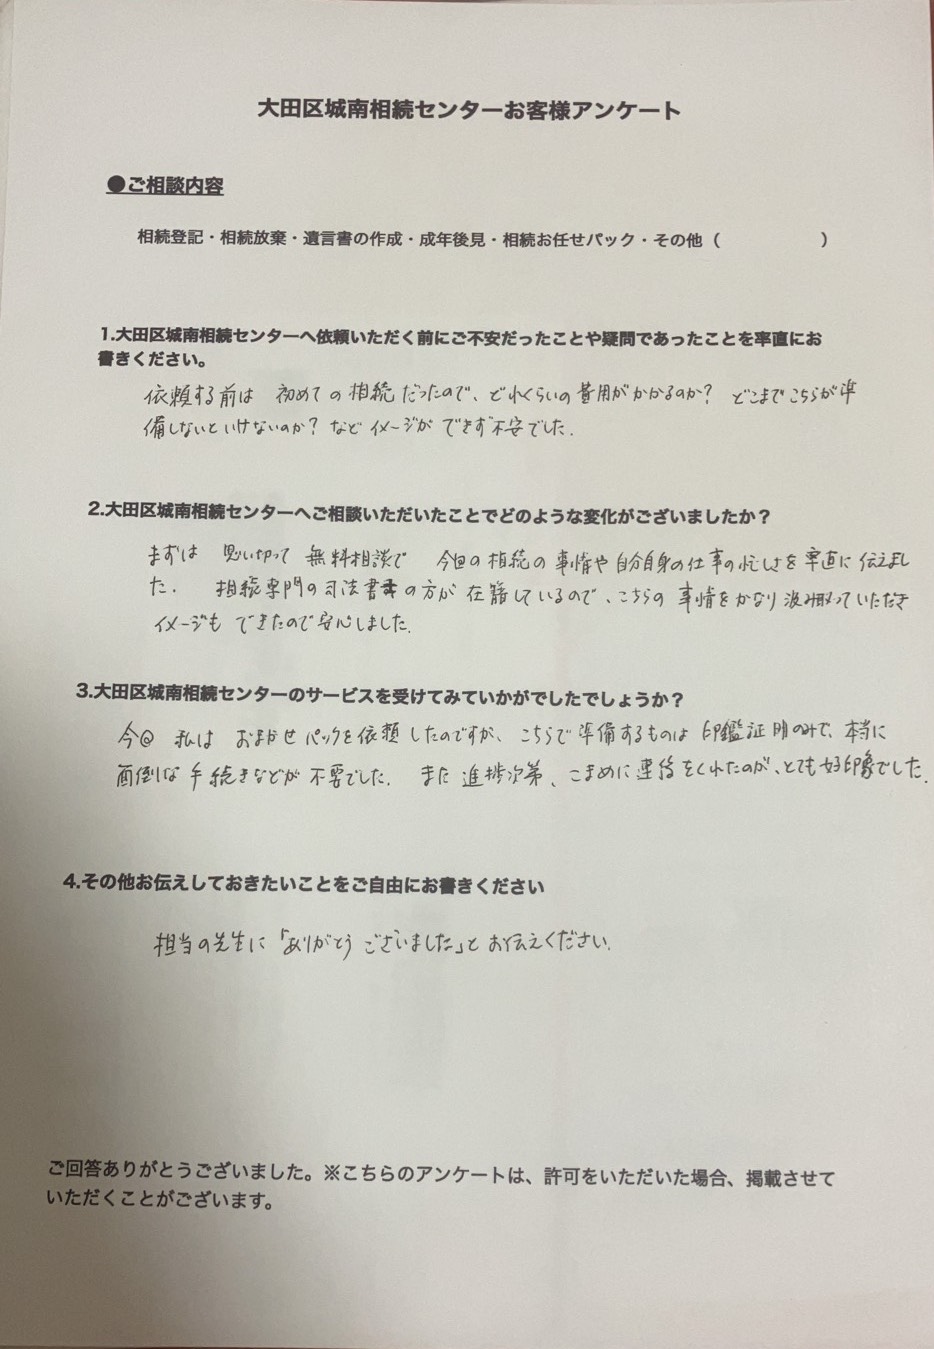 大田区城南相続センターお客様アンケート
●ご相談内容
相続登記・相続放棄・遺言書の作成・成年後見・相続お任せパック・その他（　　　　　　）
1.大田区城南相続センターへ依頼いただく前にご不安だったことや疑問であったことを率直にお
書きください。
依頼する前は 初めての相続だったので、どれくらいの費用がかかるのか? どこまでこちらが準
備しないといけないのか? など イメージが できず不安でした.
2.大田区城南相続センターへご相談いただいたことでどのような変化がございましたか？
まずは 思い切って 無料相談で 今回の相続の事情や自分自身の仕事の忙しさを率直に伝えまし
た. 相続専門の司法書士の方が在籍しているので、こちらの事情をかなり汲み取っていただき
イメージも できたので安心しました.
3.大田区城南相続センターのサービスを受けてみていかがでしたでしょうか？
今回 私は おまかせパックを依頼したのですが、こちらで準備するものは 印鑑証明のみで、本当に
面倒な手続きなどが不要でした. また進捗次第、こまめに連絡をくれたのが、とても好印象でした.
4.その他お伝えしておきたいことをご自由にお書きください
担当の先生に「ありがとうございました」とお伝えください.
ご回答ありがとうございました。※こちらのアンケートは、許可をいただいた場合、掲載させて
いただくことがございます。